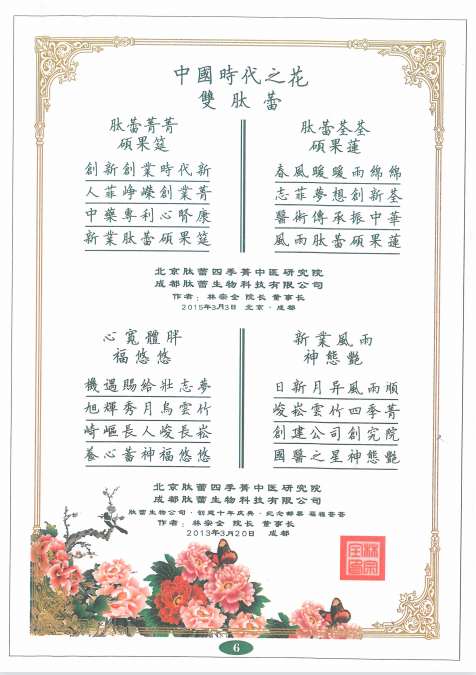 中國時代之花
雙肽蕾
肽蕾菁菁
碩果筵
創新創業時代新
人菲崢嶸創業菁
中藥專利心腎康
新業肽蕾碩果筵
肽蕾荃荃
碩果蓮
春風暖暖雨綿綿
志菲夢想創新荃
醫術傳承振中華
風雨肽蕾碩果蓮
北京肽蕾四季菁中医研究院
成都肽蕾生物科技有限公司
作者：林宗全 院长 董事长
2015年3月3日 北京·成都
心寬體胖
福悠悠
機遇賜給壯志夢
旭輝秀月鳥雲竹
崎嶇長人峻長崧
養心蓄神福悠悠
新業風雨
神態艷
日新月异風雨順
峻崧雲竹四季菁
創建公司創究院
國醫之星神態艷
北京肽蕾四季菁中医研究院
成都肽蕾生物科技有限公司
肽蕾生物公司·创建十年庆典·纪念邮票
作者：林宗全 院长 董事长
2013年3月20日 成都
林宗全
6